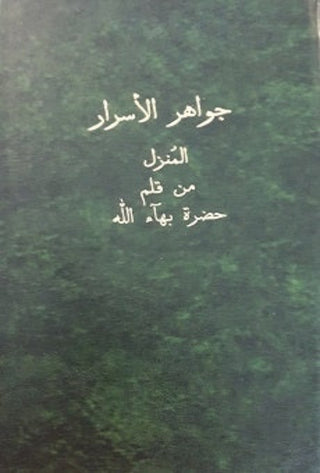 جواهر الأسرار
المُنزل
من قلم
حضرة بهآء الله